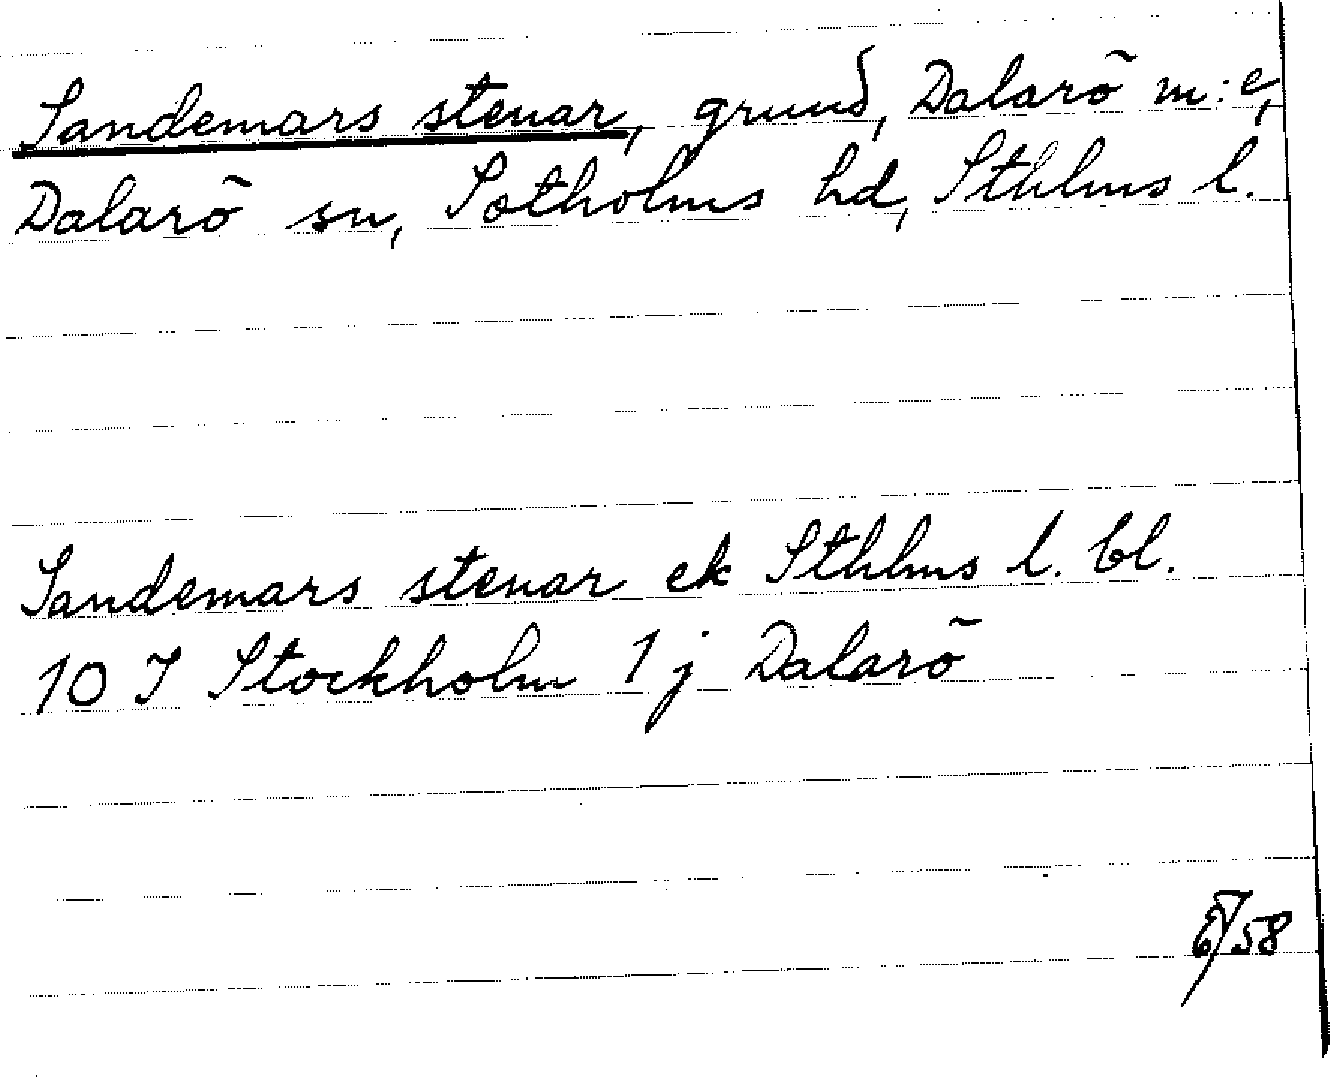 Sandemars stenar, grund, Dalarö m:e,
Dalarö sn, Sotholms hd, Sthlms l.
Sandemars stenar ek Sthlms l. bl.
10 I Stockholm 1 j Dalarö
/58